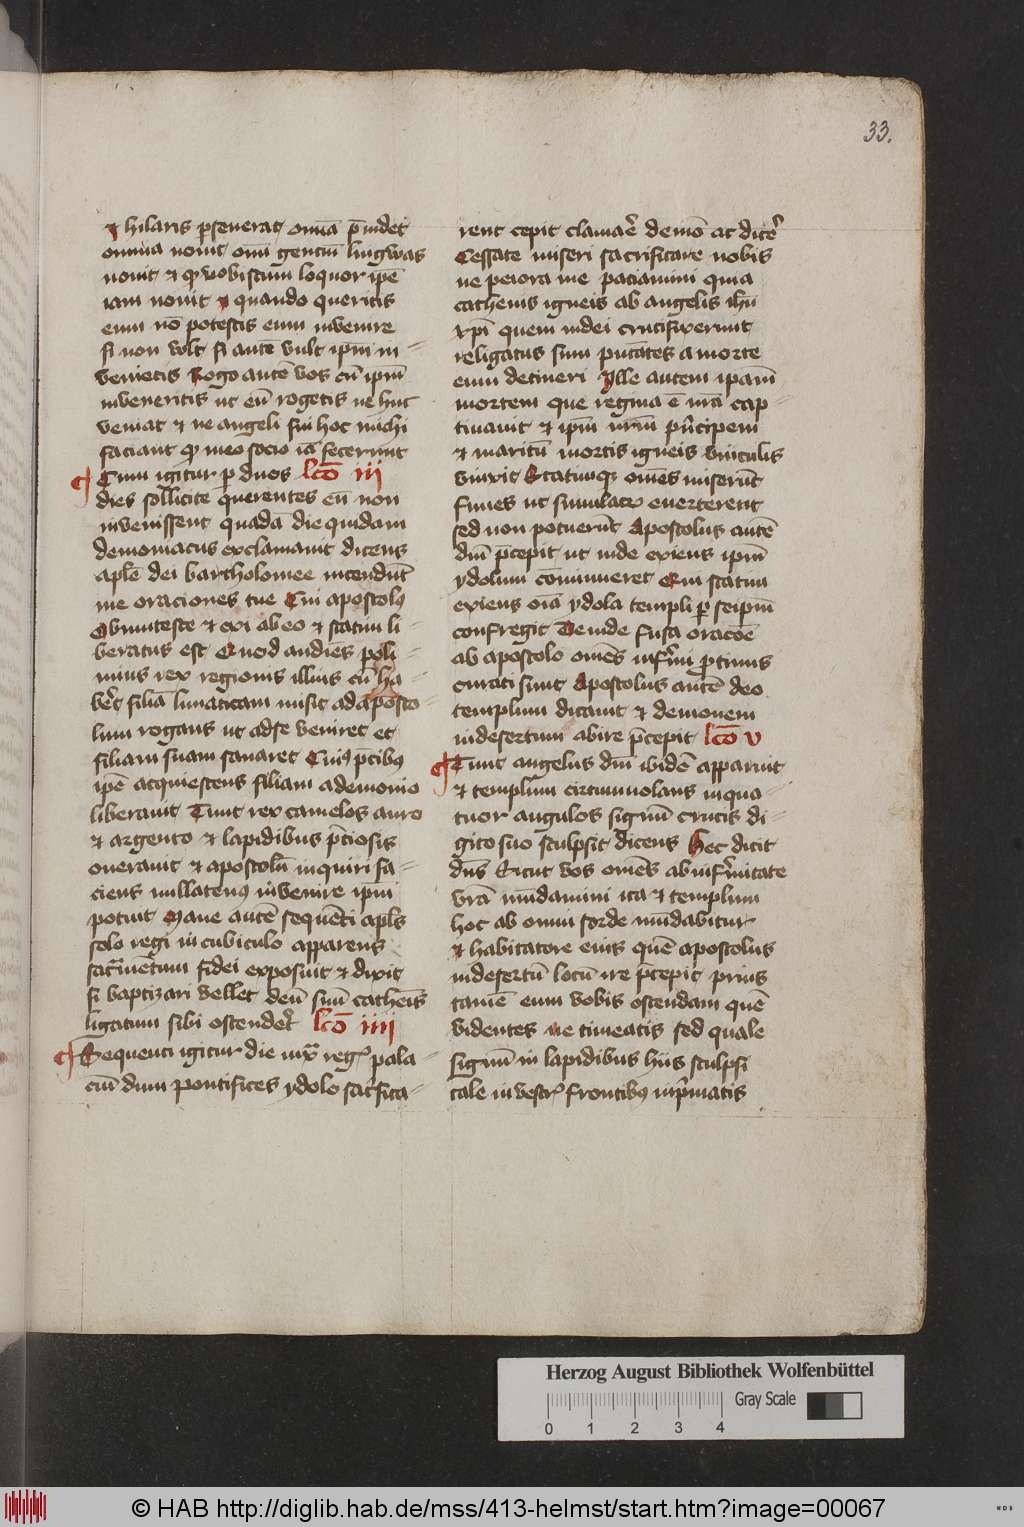 33.
et hilaris p̄seuerat omīa p̄uidet
omnia nouit om̄i gentiū lingwas
nouit et qd̓ vobiscum loquor ip̄e
iam nouit et quando queritis
eum nō potestis eum inuenire
si non vult si autē vult ip̄m in-
uenietis Rogo autē vos cū ip̄m
inueneritis ut eū rogetis ne huc
veniat et ne angeli sui hoc michi
faciant qd̓ meo socio iā fecerunt
Cum igitur p̱ duos lcō iii
dies sollicite querentes eū non
inuenissent quadā die quidam
demoniacus exclamauit dicens
aplē dei bartholomee incendūt
me oraciones tue Cui apostolꝰ
Obmutesce et exi ab eo et statim li-
beratus est Quod audiēs poli-
mius rex regionis illius cū ha-
bēt filiā lunaticam misit ad aposto-
lum rogans ut ad se veniret et
filiam suam sanaret Cuiꝰ p̄cibꝰ
ip̄e acquiescens filiam a demonio
liberauit Tunc rex camelos auro
et argento et lapidibus p̄ciosis
onerauit et apostolū inquiri fa-
ciens nullatenꝰ inuenire ip̄m
potuit Mane autē sequēti apls
solo regi in cubiculo apparens
sacr̄mētum fidei exposuit et dixit
si baptizari vellet deū suū cathēis
ligatum sibi ostenderet lcō iiii
Sequenti igitur die iuxᵃ regꝭ pala-
ciū dum pontifices ydolo sacʳfica-
rent cepit clamar̄e demō ac dicēs
Cessate miseri sacrificare nobis
ne peiora me paciamini quia
cathenis igneis ab angelis ihū
xp̄i quem iudei crucifixerunt
religatus sum putātes a morte
eum detineri Ille autem ipam̄
mortem que regina ē nrā cap-
tiuauit et ip̄m nr̄m pʳncipem
et maritū mortis igneis vinculis
vinxit Statimqꝫ om̄es miserūt
funes ut simulacrꝫ euerterent
sed non potuerūt Apostolus autē
dm̄ p̄cepit ut inde exiens ip̄m
ydolum cōminueret Qui statim
exiens oīa ydola templi p̱ seip̄m
confregit Deinde fusa oracoē
ab apostolo om̄es infirmi protinus
curati sunt Apostolus autē deo
templum dicauit et demonem
in desertum abire p̄cepit lcō v
Tunc angelus dn̄i ibidē apparuit
et templum circumuolans in qua-
tuor angulos signū crucis di-
gito suo sculpsit dicens Hec dicit
dn̄s Sicut vos om̄es ab infirmitate
vrā mūdamini ita et templum
hoc ab omni sorde mūdabitur
et habitatore eius quē apostolus
in desertū locū ire p̄cepit prius
tamē eum vobis ostendam quē
videntes ne timeatis sed quale
signū in lapidibus hiis sculpsi
tale in vestrꝭ frontibꝰ inpʳmatis
Herzog August Bibliothek Wolfenbüttel
Gray Scale
0 1 2 3 4
© HAB http://diglib.hab.de/mss/413-helmst/start.htm?image=00067